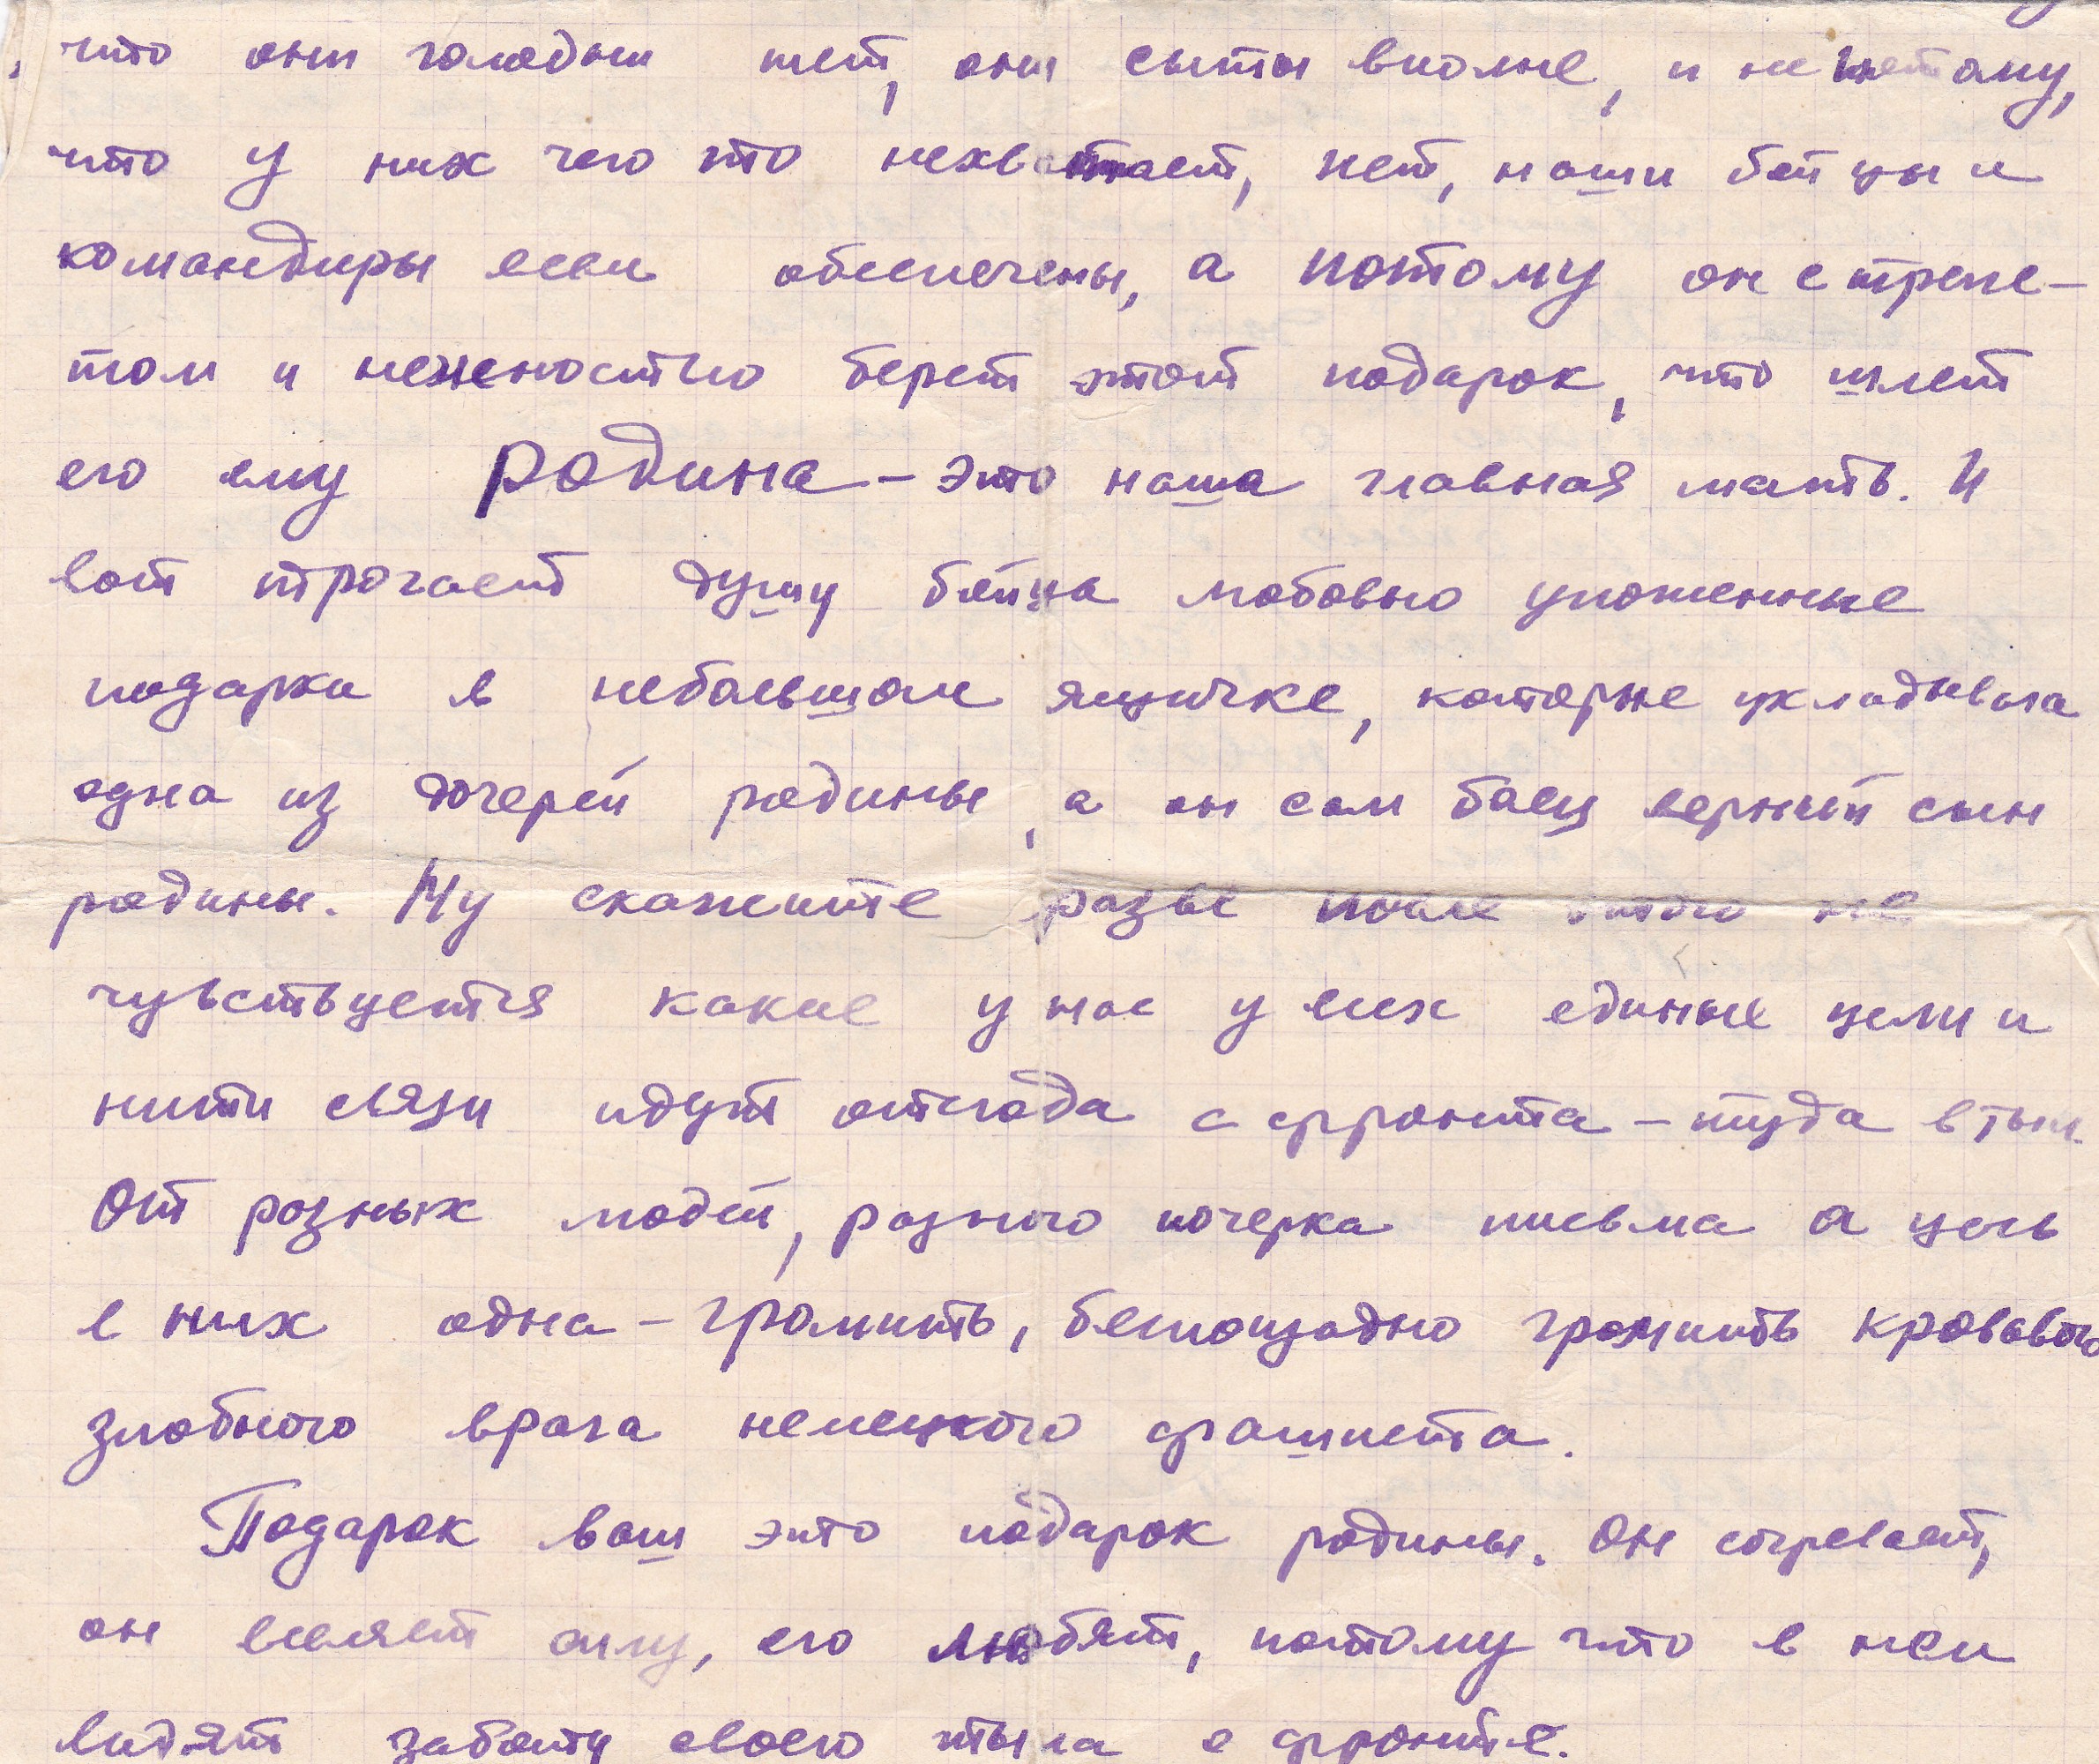 , что они голодны нет, они сыты вполне, и не потому,
что у них чего то нехватает, нет, наши бойцы и
командиры всем обеспечены, а потому он с трепе-
том и неженостью берет этот подарок, что шлет
его ему родина – это наша главная мать. И
вот трогает душу бойца любовно уложенные
подарки в небольшом ящичке, которые укладывала
одна из дочерей родины, а он сам боец верный сын
родины. Ну скажите разве после этого не
чувствуется какие у нас у всех единые цели и
нити связи идут отсюда с фронта – туда в тыл.
От разных людей, разного почерка письма а цель
в них одна – громить, беспощадно громить кровавого
злобного врага немецкого фашиста.
Подарок ваш это подарок родины. Он согревает,
он вселяет силу, его любят, потому что в нем
видят заботу своего тыла о фронте.